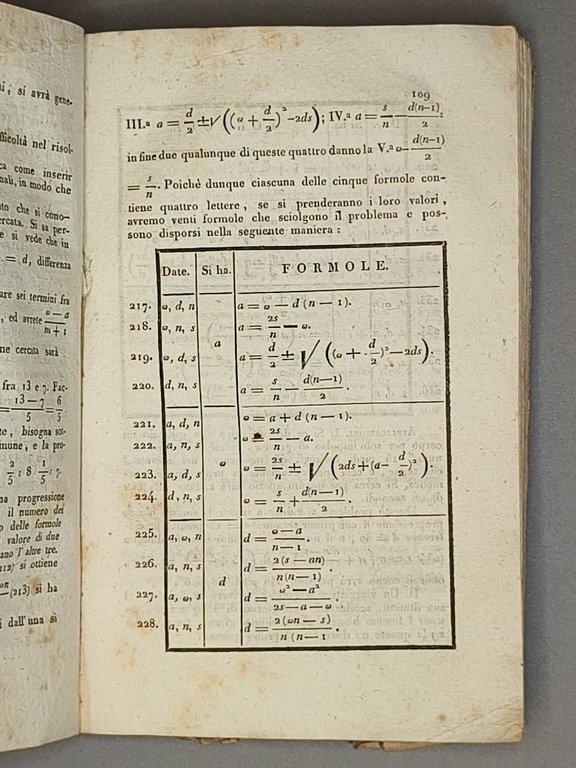 i, si avrà gene-
fficoltà nel risol-
ca come inserir
nali, in modo che
nto che si cono-
ercata. Si sa per-
e si vede che in
= d, differenza
are sei termini fra
, ed avrete ω — a / m + 1
ne cercata sarà
fra 13 e 7. Fac-
= 13 — 7 / 5 = 6 / 5
te, bisogna sot-
mune, e la pro-
2/5 : 8 1/5 : 7.
na progressione
il numero dei
o delle formole
valore di due
ano l'altre tre.
212) si ottiene
(213) si ha
i dall'una si
109
III.ª a = d/2 ± √((ω + d/2)² – 2ds); IV.ª a = s/n — d(n–1)/2 :
in fine due qualunque di queste quattro danno la V.ª ω — d(n–1)/2
= s/n. Poichè dunque ciascuna delle cinque formole con-
tiene quattro lettere, se si prenderanno i loro valori,
avremo venti formole che sciolgono il problema e pos-
sono disporsi nella seguente maniera :
Date. Si ha. FORMOLE.
217. ω, d, n a = ω — d (n — 1).
218. ω, n, s a = 2s/n — ω.
a
219. ω, d, s a = d/2 ± √((ω + d/2)² — 2ds).
220. d, n, s a = s/n — d(n—1)/2 .
221. a, d, n ω = a + d (n — 1).
222. a, n, s ω = 2s/n — a.
ω
223. a, d, s ω = 2s/n ± √(2ds + (a — d/2)²).
224. d, n, s ω = s/n + d(n—1)/2 .
225. a, ω, n d = ω — a / n — 1
226. a, n, s d = 2 (s — an) / n (n — 1) .
d
227. a, ω, s d = ω² — a² / 2s — a — ω .
228. a, n, s d = 2 (ωn — s) / n (n — 1 .